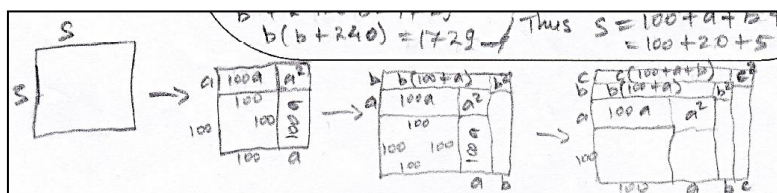 b(b+240) = 1729
Thus S = 100+a+b+
= 100+20+5
S
S
a 100a a²
100
100 100 100a
100 a
b b(100+a) b²
a 100a a²
100
100 100 100a
100
a b
c c(100+a+b) c²
b b(100+a) b²
a 100a a²
100
100 a b c